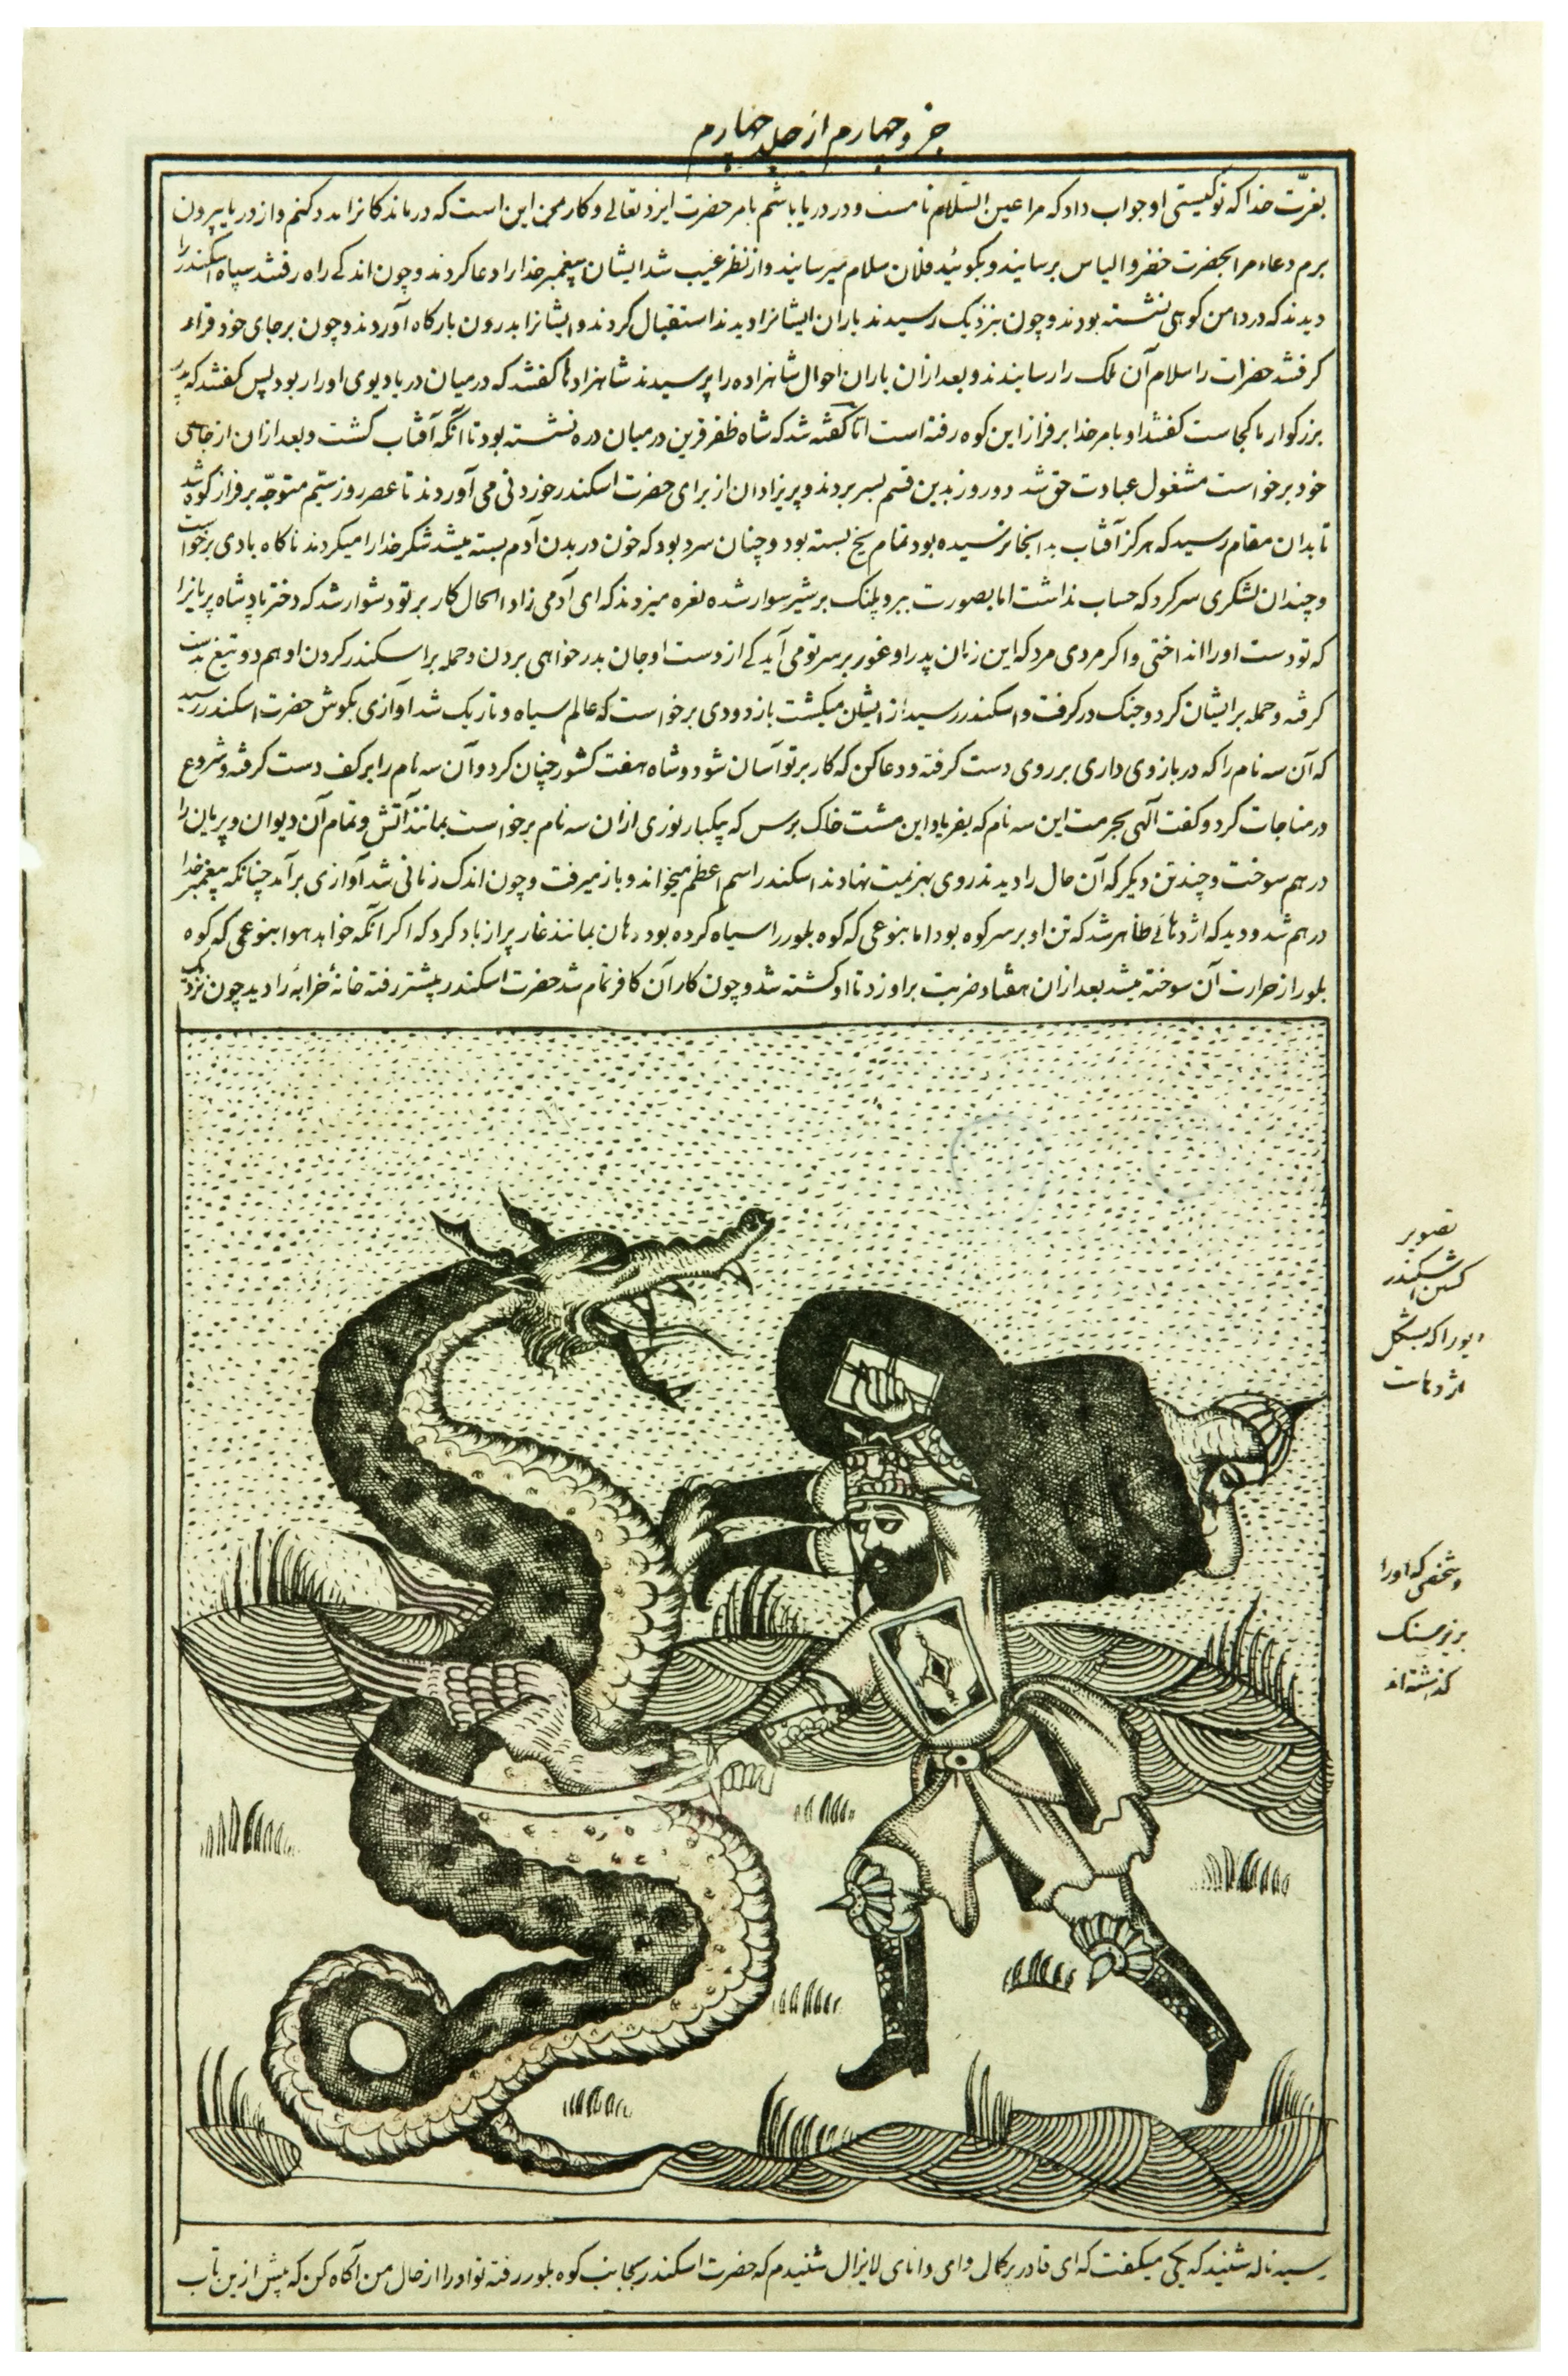 جزو چهارم از جلد چهارم
بعزّت خدا که تو کیستی او جواب داد که مرا عین السّلام نامست و در دریا باشم بامر حضرت ایزد تعالی و کار من این است که درماندکانرا مدد کنم و از دریا بیرون
برم دعاء مرا بحضرت خضر و الیاس برسانید و بکوئید فلان سلام میرسانید و از نظر غیب شد ایشان پیغمبر خدا را دعا کردند و چون اندکے راه رفتند سپاه اسکندر را
دیدند که در دامن کوهی نشسته بودند و چون بنزدیک رسیدند یاران ایشانرا دیدند استقبال کردند و ایشانرا بدرون بارکاه آوردند و چون بر جای خود قرار
کرفتند حضرات را سلام آن ملک را رسانیدند و بعد ازان یاران احوال شاهزاده را پرسیدند شاهزادها کفتند که در میان دریا دیوی او را ربود پس کفتند که پدر
بزرکوار ما کجاست کفتند او بامر خدا بر فراز این کوه رفته است اما کفته شد که شاه ظفر قرین در میان دره نشسته بود تا انکه آفتاب کشت و بعد ازان از جای
خود برخواست مشغول عبادت حق شد دو روز بدین قسم بسر بردند و پریزادان از برای حضرت اسکندر خوردنی می آوردند تا عصر روز سیّم متوجّه بر فراز کوه شد
تا بدان مقام رسید که هرکز آفتاب بدانجا نرسیده بود تمام یخ بسته بود و چنان سرد بود که خون در بدن آدم بسته میشد شکر خدا را میکردند ناکاه بادی برخواست
و چندان لشکری سر کرد که حساب نداشت اما بصورت ببر و پلنک بر شیر سوار شده نعره میزدند که ای آدمی زاد الحال کار بر تو دشوار شد که دختر پادشاه پریانرا
که تو دست او را انداختی و اکر مردی مرد که این زمان پدر او غور بر سر تو می آید کے از دست او جان بدر خواهی بردن و حمله بر اسکندر کردن او هم دو تیغ بدست
کرفته و حمله بر ایشان کرد و جنک در کرفت و اسکندر رسید از ایشان میکشت باز دودی برخواست که عالم سیاه و تاریک شد آوازی بکوش حضرت اسکندر رسید
که آن سه نام را که در بازوی داری بر روی دست کرفته و دعا کن که کار بر تو آسان شود و شاه هفت کشور چنان کرد و آن سه نام را بر کف دست کرفته و شروع
در مناجات کرد و کفت آلهی بحرمت این سه نام که بفریاد این مشت خاک برس که یکبار نوری ازان سه نام برخواست بمانند آتش و تمام آن دیوان و پریان را
در هم سوخت و چند تن دیکر که آن حال را دیدند روی بهزیمت نهادند اسکندر اسم اعظم میخواند و باز میرفت و چون اندک زمانی شد آوازی برآمد چنانکه پیغمبر خدا
در هم شد و دید که اژدهائے ظاهر شد که تن او بر سر کوه بود اما بنوعی که کوه بلور را سیاه کرده بود دهان بمانند غار پر از باد کرد که اکر آنکه خواهد هوا بنوعی که کوه
بلور از حرارت آن سوخته میشد بعد ازان هفتاد ضربت بر او زد تا او کشته شد و چون کار آن کافر تمام شد حضرت اسکندر پیشتر رفته خانهٔ خرابهٔ را دید چون نزدیک
تصویر
کشتن اسکندر
دیو را که بشکل
اژدهاست
و شخصی که او را
در زیر سنک
کذشته اند
رسید ناله شنید که یکی میکفت که ای قادر پر کمال و ای دانای لایزال شنیدم که حضرت اسکندر بجانب کوه بلور رفته تو او را از حال من آکاه کن که پیش ازین تاب